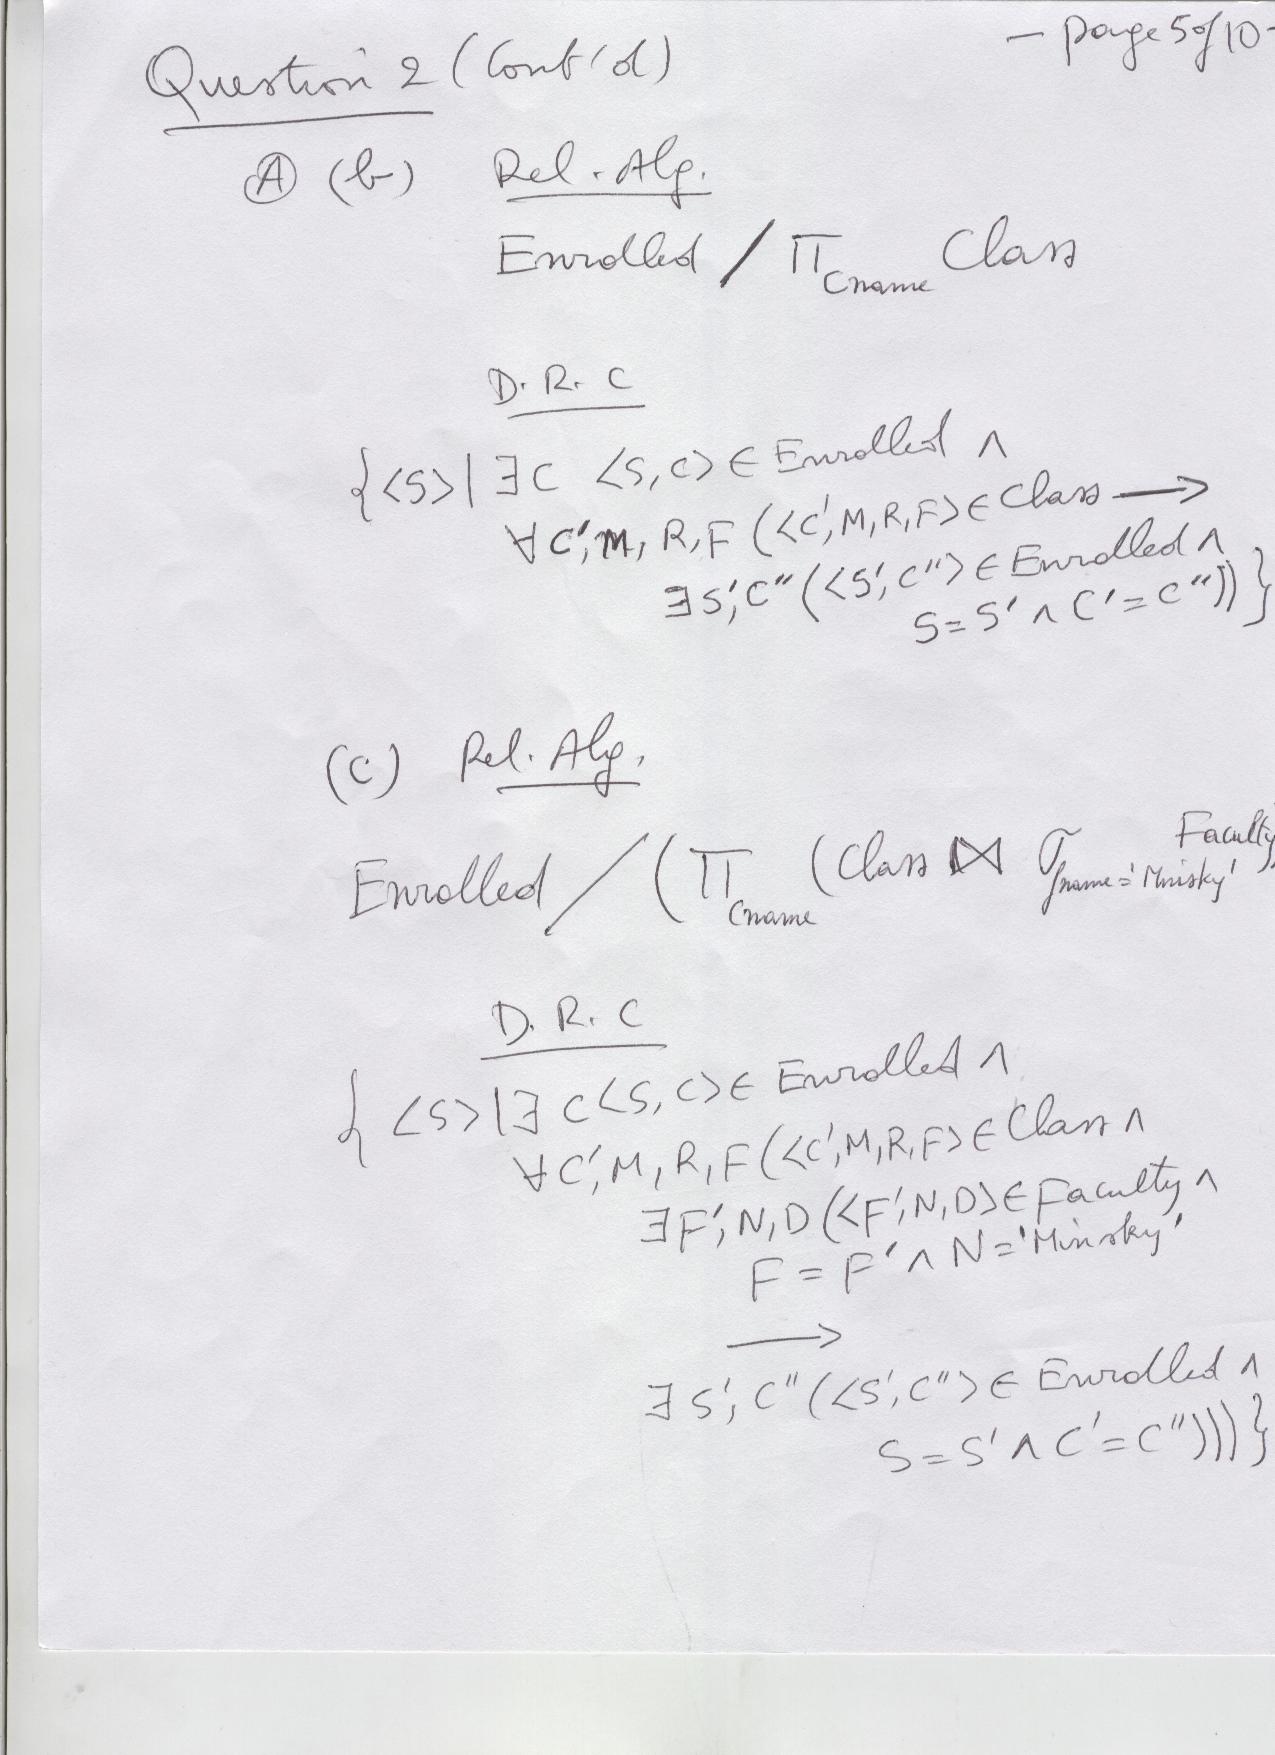 - page 5 of 10 -
Question 2 (Cont'd)
Ⓐ (b) Rel. Alg.
Enrolled / Π Cname Class
D. R. C
{<S> | ∃C <S, C> ∈ Enrolled ∧
∀ C', M, R, F (<C', M, R, F> ∈ Class ⟶
∃ S', C'' (<S', C''> ∈ Enrolled ∧
S = S' ∧ C' = C''))}
(c) Rel. Alg.
Enrolled / (Π Cname (Class ⋈ σ fname = 'Minsky' Faculty
D. R. C
{ <S> | ∃ C <S, C> ∈ Enrolled ∧
∀ C', M, R, F (<C', M, R, F> ∈ Class ∧
∃ F', N, D (<F', N, D> ∈ Faculty ∧
F = F' ∧ N = 'Minsky'
⟶
∃ S', C'' (<S', C''> ∈ Enrolled ∧
S = S' ∧ C' = C'')))}